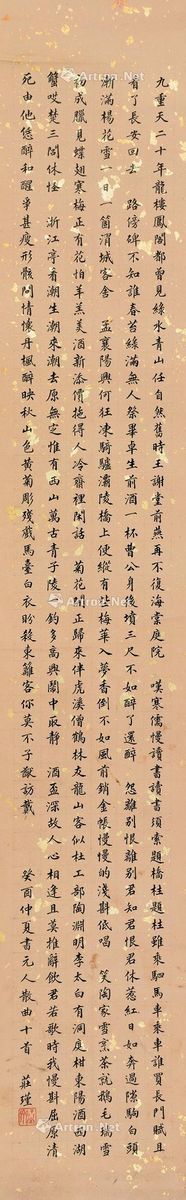 九重天二十年龍樓鳳閣都曾見綠水青山任自然舊時王謝堂前燕再不復海棠庭院　嘆寒儒慢讀書讀書須索題橋柱題柱雖乘駟馬車乘車誰買長門賦且
看了長安回去　路傍碑不知誰春苔綠滿無人祭畢卓生前酒一杯曹公身後墳三尺不如醉了還醉　怨離別恨離別君知君恨君休惹紅日如奔過隙駒白頭
漸滿楊花雪一日一箇渭城客舍　孟襄陽興何狂凍騎驢灞陵橋上便縱有些梅華入夢香倒不如風前銷金帳慢慢的淺斟低唱　笑陶家雪烹茶就鵝毛瑞雪
初成臘見蝶翅寒梅正有花怕羊羔美酒新添價拖得人冷齋裡閒話　菊花開正歸來伴虎溪僧鶴林友龍山客似杜工部陶淵明李太白有洞庭柑東陽酒西湖
蟹哎楚三閭休怪　浙江亭看潮生潮來潮去原無定惟有西山萬古青子陵一釣多高興鬧中取靜　酒盃深故人心相逢且莫推辭飲君若歌時我慢斟屈原清
死由他恁醉和醒爭甚瘦形骸悶情懷丹楓醉映秋山色黃菊彫殘戲馬臺白衣盼殺東籬客你莫不子猷訪戴　癸酉仲夏書元人散曲十首　莊瑾
Artron.Net